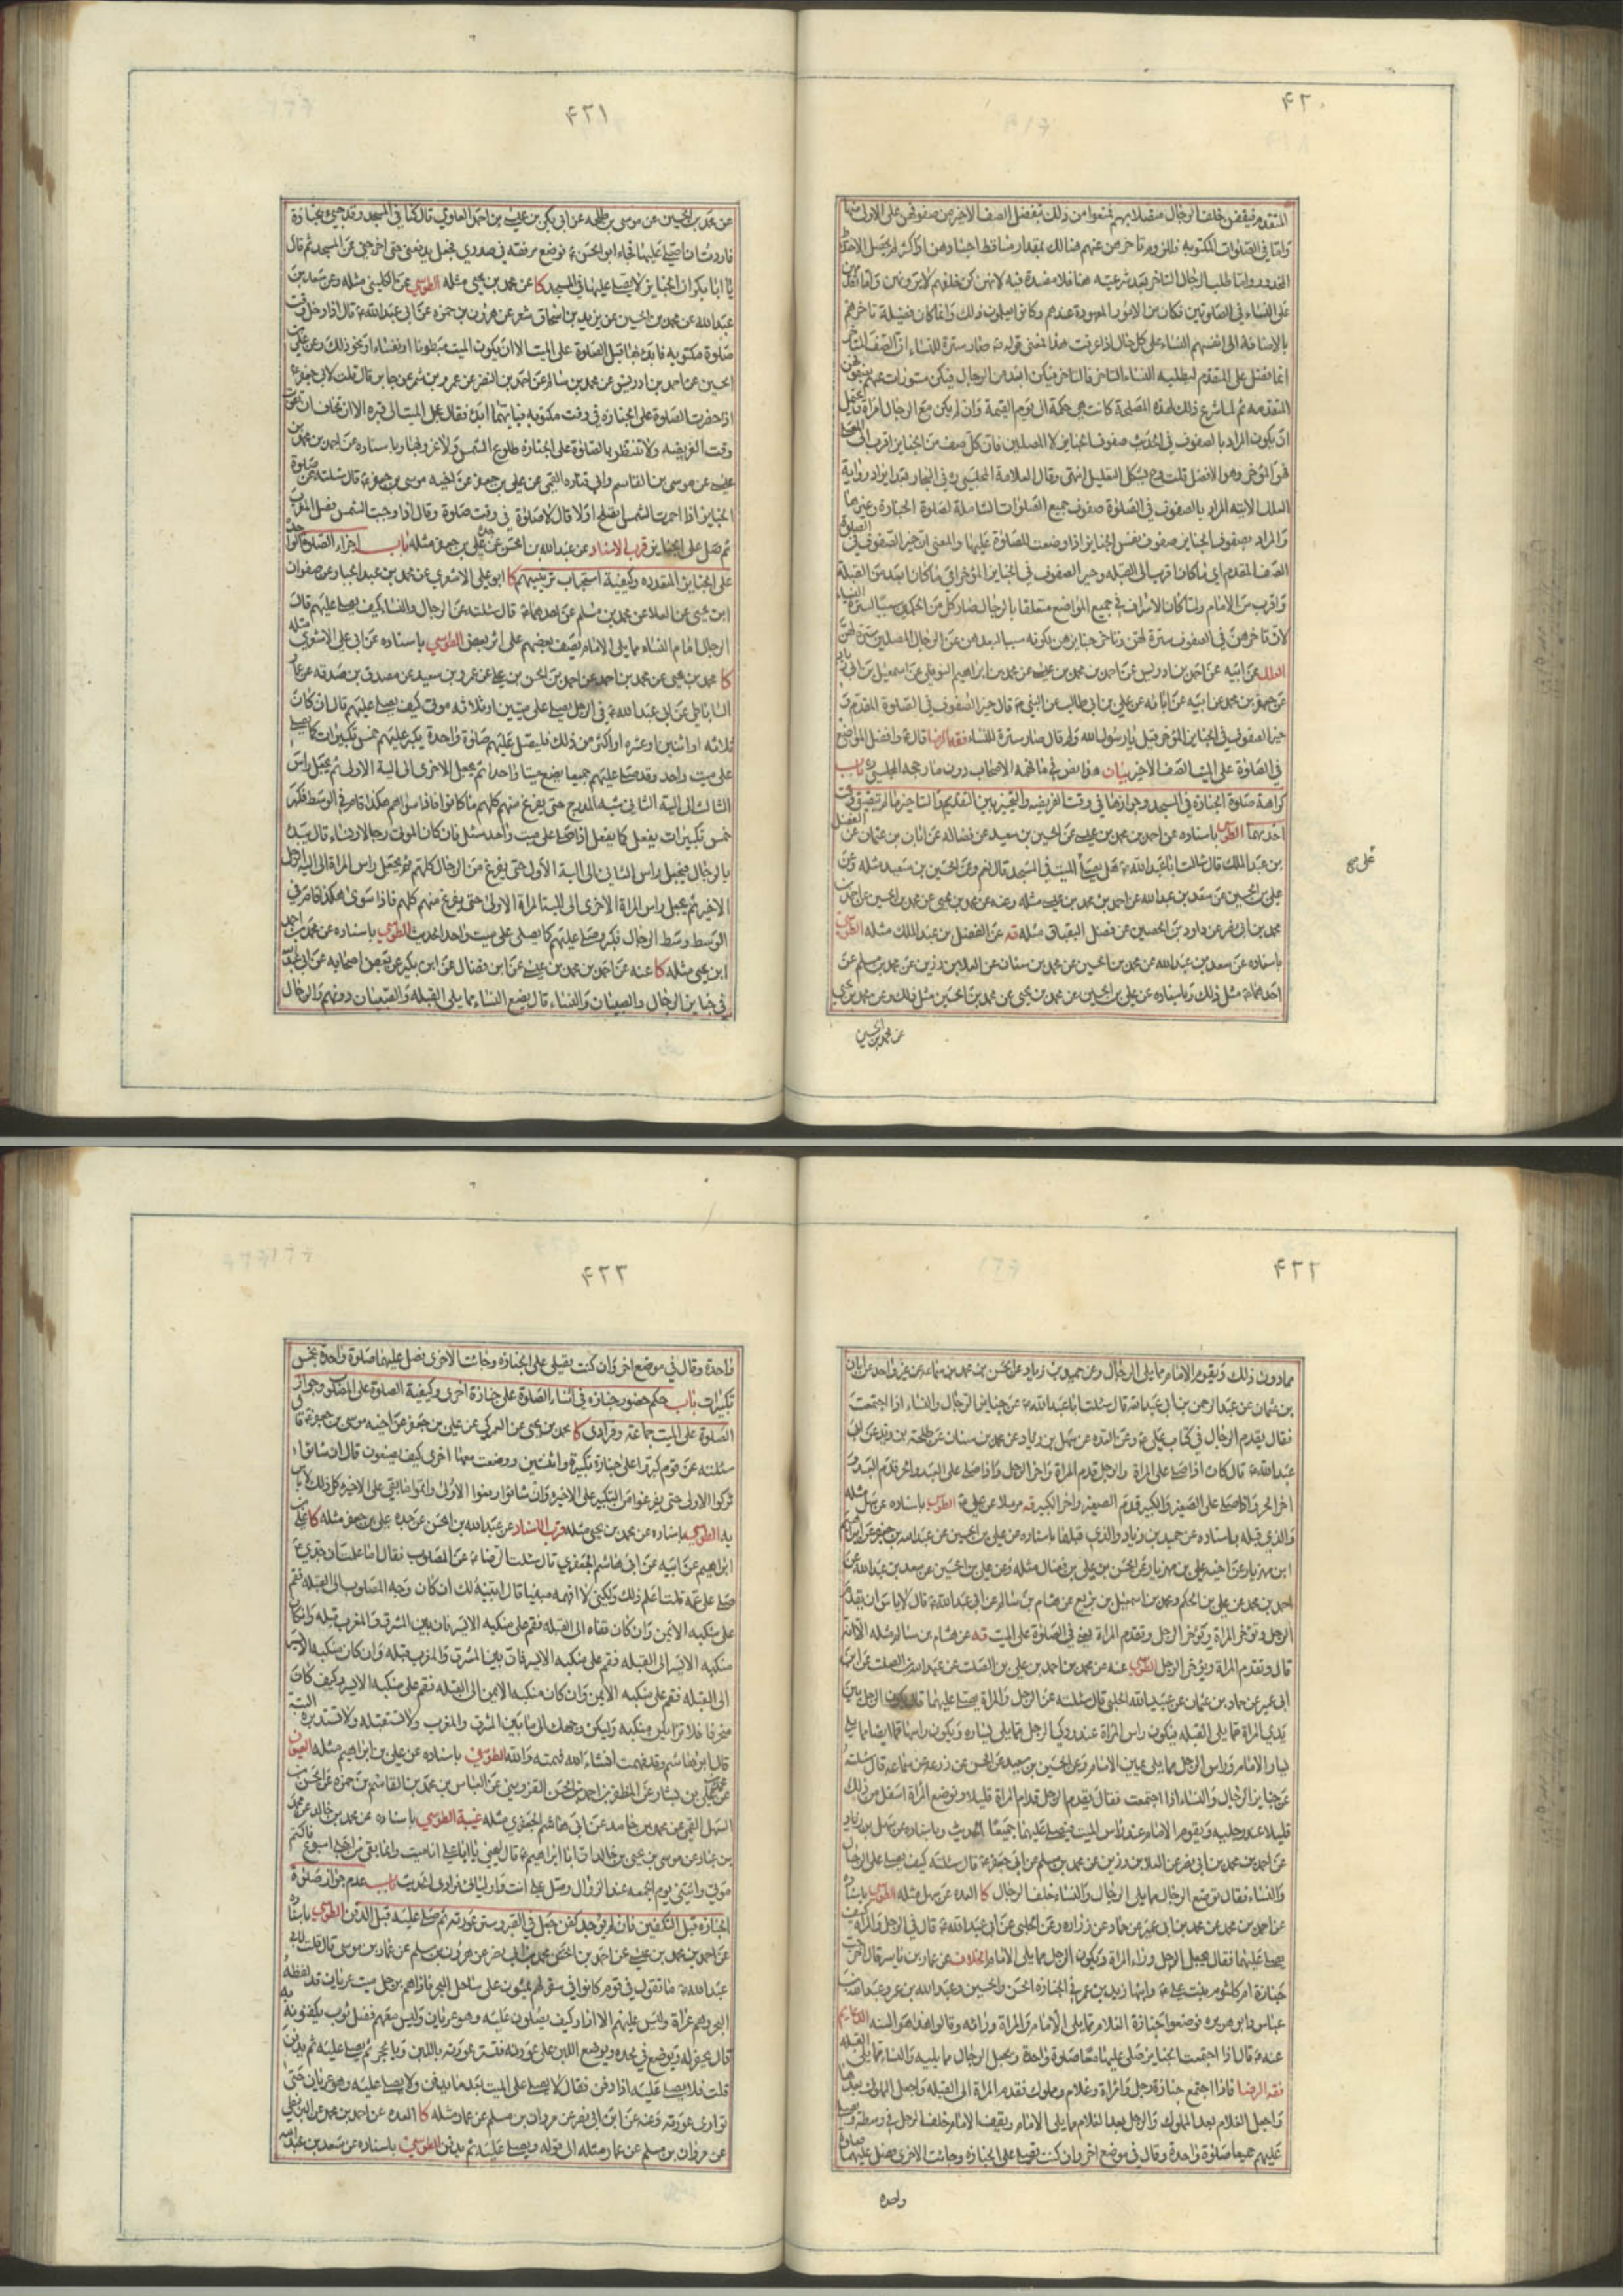 ۴۲۰
المتقدم فيقفن خلف الرجال متصلا بهم فمنعوا من ذلك بتفضل الصف الاخير من صفوفهن على الاولى منها
واما في الصلوات المكتوبة فللزوم تاخرهن عنهم هنالك بمقدار مساقط اجسادهن او اكثر لم يحصل الاختلاط
على النساء في الصلوتين فكان من الامور المعهودة عندهم وكانوا يعلمون ذلك وانما كان فضيلة تاخرهم
بالاضافة الى انفسهم النساء على كل حال اذا عرفت هذا فمعنى قوله فصار سترة للنساء ان الصف المتاخر
انما فضل على المقدم ليطلبه النساء المتاخر فالمتاخر فيكن ابعد من الرجال فيكن مستورات عنهم
المتقدمة ثم لما شرع ذلك لهذه المصلحة كانت هي حكمة الى يوم القيمة وان لم يكن مع الرجال امراة
ان يكون المراد بالصفوف في الحديث صفوف الجنايز لا المصلين فان كل صف من الجنايز اقرب الى القبلة
فهو المؤخر وهو الافضل قلت وح يشكل التعليل انتهى وقال العلامة المجلسي ره في البحار بعد ايراد رواية
العلل الاتيه المراد بالصفوف في الصلوة صفوف جميع الصلوات الشاملة لصلوة الجنازة وغيرها
والمراد بصفوف الجنايز صفوف نفس الجنايز اذا وضعت للصلوة عليها والمعنى ان خير الصفوف في الصلوة
الصف المقدم اي ما كان اقرب الى القبله وخير الصفوف في الجنايز المؤخر اي ما كان ابعد من القبلة
واقرب من الامام ولما كان الاشراف في جميع المواضع متعلقا بالرجال صار كل من الحكمين سببا لسترة النساء
لان تاخرهن في الصفوف سترة لهن وتاخر جنايزهن لكونه سببا لبعدهن عن الرجال المصلين سترة لهن
العلل عن ابيه عن احمد بن ادريس عن احمد بن محمد بن عيسى عن محمد بن ابراهيم النوفلي عن اسمعيل بن ابي زياد
عن جعفر بن محمد عن ابيه عن ابائه عن علي بن ابي طالب عن النبي ص قال خير الصفوف في الصلوة المقدم و
خير الصفوف في الجنايز المؤخر قيل يا رسول الله ولم قال صار سترة للنساء فقه الرضا قال ع وافضل المواضع
في الصلوة على الميت الصف الاخير بيان هذا نص في ما فهمه الاصحاب دون ما رجحه المجلسي ره باب
كراهة صلوة الجنازة في المسجد وجوازها في وقت الفريضه والتخيير بين التقديم والتاخير ما لم يتضيق وقت
احدهما الطوسي باسناده عن احمد بن محمد بن عيسى عن الحسين بن سعيد عن فضاله عن ابان بن عثمان عن الفضل
بن عبد الملك قال سالت ابا عبد الله ع هل يصلى على الميت في المسجد قال نعم وعن الحسين بن سعيد مثله وعن
علي بن الحسين عن سعد بن عبد الله عن احمد بن محمد بن عيسى مثله وعنه عن محمد بن يحيى عن محمد بن الحسين عن احمد بن
محمد بن ابي نصر عن داود بن الحصين عن فضل البقباق مثله قه عن الفضل بن عبد الملك مثله الطوسي
باسناده عن سعد بن عبد الله عن محمد بن الحسين عن محمد بن سنان عن العلا بن رزين عن محمد بن مسلم عن
احدهما ع مثل ذلك وباسناده عن علي بن الحسين عن محمد بن يحيى عن محمد بن الحسين مثل ذلك وعن محمد بن يحيى
عن محمد بن الحسين
على صح
۴۲۱
عن محمد بن الحسين عن موسى بن طلحه عن ابي بكر بن عيسى بن احمد العلوي قال كنا في المسجد وقد جيئ بجنازة
فاردت ان اصلي عليها فجاء ابو الحسن ع فوضع مرفقه في صدري فجعل يدفعني حتى اخرجني عن المسجد ثم قال
يا ابا بكر ان الجنايز لا يصلى عليها في المسجد كا عن محمد بن يحيى مثله الطوسي عن الكليني مثله وعن سعد بن
عبد الله عن محمد بن الحسين عن يزيد بن اسحاق شعر عن هرون بن حمزه عن ابي عبد الله ع قال اذا دخل وقت
صلوة مكتوبه فابدء بها قبل الصلوة على الميت الا ان يكون الميت مبطونا او نفساء او نحو ذلك وعن علي بن
الحسين عن احمد بن ادريس عن محمد بن سالم عن احمد بن النضر عن عمرو بن شمر عن جابر قال قلت لابي جعفر ع
اذا حضرت الصلوة على الجنازه في وقت مكتوبه فبايهما ابدء فقال عجل الميت الى قبره الا ان تخاف ان تفوت
وقت الفريضه ولا تنتظر بالصلوة على الجنازة طلوع الشمس ولا غروبها وباسناده عن احمد بن محمد بن
عيسى عن موسى بن القاسم وابي قتاده القمي عن علي بن جعفر عن اخيه موسى بن جعفر ع قال سئلته عن صلوة
الجنايز اذا احمرت الشمس ايصلح او لا قال لا صلوة في وقت صلوة وقال اذا وجبت الشمس فصل المغرب
ثم صل على الجنايز قرب الاسناد عن عبد الله بن الحسن عن جده علي بن جعفر مثله باب اجزاء الصلوة الواحدة
على الجنايز المتعدده وكيفية استحباب ترتيبهم كا ابو علي الاشعري عن محمد بن عبد الجبار عن صفوان
ابن يحيى عن العلا عن محمد بن مسلم عن احدهما ع قال سئلته عن الرجال والنساء كيف يصلى عليهم قال
الرجال امام النساء مما يلي الامام يصف بعضهم على اثر بعض الطوسي باسناده عن ابي علي الاشعري مثله
كا محمد بن يحيى عن محمد بن احمد عن احمد بن الحسن بن علي عن عمرو بن سعيد عن مصدق بن صدقه عن عمار
الساباطي عن ابي عبد الله ع في الرجل يصلي على ميتين او ثلاثه موتى كيف يصلي عليهم قال ان كان
ثلاثه او اثنين او عشره او اكثر من ذلك فليصل عليهم صلوة واحدة يكبر عليهم خمس تكبيرات كما يصلي
على ميت واحد وقد صلى عليهم جميعا يضع ميتا واحدا ثم يجعل الاخر الى الية الاول ثم يجعل راس
الثالث الى الية الثاني شبه المدرج حتى يفرغ منهم كلهم ما كانوا فاذا سواهم هكذا قام في الوسط فكبر
خمس تكبيرات يفعل كما يفعل اذا صلى على ميت واحد سئل فان كان الموتى رجالا ونساء قال يبدء
بالرجال فيجعل راس الثاني الى الية الاول حتى يفرغ من الرجال كلهم ثم يجعل راس المراة الى الية الرجل
الاخير ثم يجعل راس المراة الاخرى الى الية المراة الاولى حتى يفرغ منهم كلهم فاذا سوى هكذا قام في
الوسط وسط الرجال فكبر وصلى عليهم كما يصلي على ميت واحد الحديث الطوسي باسناده عن محمد بن احمد
ابن يحيى مثله كا عنه عن احمد بن محمد بن عيسى عن ابن فضال عن ابن بكير عن بعض اصحابه عن ابي عبد الله
في جنايز الرجال والصبيان والنساء قال يضع النساء مما يلي القبله والصبيان دونهم والرجال
۴۲۲
مما دون ذلك ويقوم الامام مما يلي الرجال وعن حميد بن زياد عن الحسن بن محمد بن سماعه عن غير واحد عن ابان
بن عثمان عن عبد الرحمن بن ابي عبد الله قال سئلت ابا عبد الله ع عن جنايز الرجال والنساء اذا اجتمعت
فقال يقدم الرجال في كتاب علي ع وعن العده عن سهل بن زياد عن محمد بن سنان عن طلحه بن زيد عن ابي
عبد الله ع قال كان اذا صلى على المراة والرجل قدم المراة واخر الرجل واذا صلى على العبد والحر قدم العبد و
اخر الحر واذا صلى على الصغير والكبير قدم الصغير واخر الكبير قه مرسلا عن علي ع الطوسي باسناده عن سهل مثله
والذي قبله باسناده عن حميد بن زياد والذي قبلهما باسناده عن علي بن الحسين عن عبد الله بن جعفر عن ابراهيم
ابن مهزيار عن اخيه علي بن مهزيار عن الحسن بن علي بن فضال مثله وعن علي بن الحسين عن سعد بن عبد الله عن
احمد بن محمد عن علي بن الحكم وعن محمد بن اسمعيل بن بزيع عن هشام بن سالم عن ابي عبد الله ع قال لا باس ان يقدم
الرجل وتوخر المراة ويؤخر الرجل وتقدم المراة يعني في الصلوة على الميت قه عن هشام بن سالم مثله الا انه
قال وتقدم المراة ويؤخر الرجل الطوسي عنه عن محمد بن احمد بن علي بن الصلت عن عبد الله بن الصلت عن ابن
ابي عمير عن حماد بن عثمان عن عبيد الله الحلبي قال سئلته عن الرجل والمراة يصلى عليهما قال يكون الرجل بين
يدي المراة مما يلي القبله فيكون راس المراة عند وركي الرجل مما يلي يساره ويكون راسها ايضا مما يلي
يسار الامام وراس الرجل مما يلي يمين الامام وعن الحسين بن سعيد عن الحسن عن زرعه عن سماعه قال سئلته
عن جنايز الرجال والنساء اذا اجتمعت فقال يقدم الرجل قدام المراة قليلا وتوضع المراة اسفل من ذلك
قليلا عند رجليه ويقوم الامام عند راس الميت فيصلي عليهما جميعا الحديث وباسناده عن سهل بن زياد
عن احمد بن محمد بن ابي نصر عن العلا بن رزين عن محمد بن مسلم عن ابي جعفر ع قال سئلته كيف يصلى على الرجال
والنساء فقال توضع الرجال مما يلي الرجال والنساء خلف الرجال كا العده عن سهل مثله الطوسي باسناده
عن احمد بن محمد عن محمد بن ابي عمير عن حماد عن زراره وعن الحلبي عن ابي عبد الله ع قال في الرجل والمراة كيف
يصلى عليهما فقال يجعل الرجل وراء المراة ويكون الرجل مما يلي الامام الخلاف عن عمار بن ياسر قال اخرجت
جنازة ام كلثوم بنت علي ع وابنها زيد بن عمر في الجنازه الحسن والحسين وعبد الله بن عمر وعبد الله بن
عباس وابو هريره فوضعوا جنازة الغلام مما يلي الامام والمراة وراءه وقالوا هذا هو السنه الدعايم
عنه ع قال اذا اجتمعت الجنايز صلى عليها معا صلوة واحدة ويجعل الرجال مما يليه والنساء مما يلي القبله
فقه الرضا فاذا اجتمع جنازة رجل وامراة وغلام ومملوك فقدم المراة الى القبله واجعل المملوك بعدها
واجعل الغلام بعد المملوك والرجل بعد الغلام مما يلي الامام ويقف الامام خلف الرجل في وسطه ويصلي
عليهم جميعا صلوة واحدة وقال في موضع اخر وان كنت تصلي على الجنازة وجائت الاخرى فصل عليهما صلوة
واحده
۴۲۳
واحدة وقال في موضع اخر وان كنت تصلي على الجنازه وجائت الاخرى فصل عليهما صلوة واحدة بخمس
تكبيرات باب حكم حضور جنازه في اثناء الصلوة على جنازة اخرى وكيفية الصلوة على المصلوب وجواز
الصلوة على الميت جماعة وفرادى كا محمد بن يحيى عن العمركي عن علي بن جعفر عن اخيه موسى بن جعفر ع قال
سئلته عن قوم كبروا على جنازة تكبيرة واثنتين ووضعت معها اخرى كيف يصنعون قال ان شاؤا
تركوا الاولى حتى يفرغوا من التكبير على الاخيرة وان شاؤا رفعوا الاولى واتموا ما بقي على الاخيره كل ذلك لا باس
به الطوسي باسناده عن محمد بن يحيى مثله قرب الاسناد عن عبد الله بن الحسن عن جده علي بن جعفر مثله كا علي بن
ابراهيم عن ابيه عن ابي هاشم الجعفري قال سئلت الرضا ع عن المصلوب فقال اما علمت ان جدي ع
صلى على عمه قلت اعلم ذلك ولكني لا افهمه مبينا قال ابينه لك ان كان وجه المصلوب الى القبله فقم
على منكبه الايمن وان كان قفاه الى القبله فقم على منكبه الايسر فان بين المشرق والمغرب قبلة وان كان
منكبه الايسر الى القبله فقم على منكبه الايمن وان كان منكبه الايمن الى القبله فقم على منكبه الايسر وكيف كان
منحرفا فلا تزايلن منكبه وليكن وجهك الى ما بين المشرق والمغرب ولا تستقبله ولا تستدبره البتة
قال ابو هاشم وقد فهمت انشاء الله فهمته والله الطوسي باسناده عن علي بن ابراهيم مثله العيون
السهل القمي عن محمد بن حامد عن ابي هاشم الجعفري مثله غيبة الطوسي باسناده عن محمد بن خالد عن محمد
بن عباد عن موسى بن يحيى بن خالد ان ابا ابراهيم ع قال ليحيى يا ابا علي انا ميت وانما بقي من اجلي اسبوع فاكتم
موتي وائتني يوم الجمعه عند الزوال وصل علي انت واوليائي فرادى الحديث باب عدم جواز صلوة
الجنازه قبل التكفين فان لم يوجد كفن جعل في القبر وستر عورته ثم صلى عليه قبل الدفن الطوسي باسناده
عن احمد بن محمد بن عيسى عن احمد بن الحسن محمد بن ابي نصر عن هرون بن مسلم عن عمار بن موسى قال قلت لابي
عبد الله ع ما تقول في قوم كانوا في سفر لهم يمشون على ساحل البحر فاذا هم برجل ميت عريان قد لفظه
البحر وهم عراة وليس عليهم الا ازار وكيف يصلون عليه وهو عريان وليس معهم فضل ثوب يكفنونه به
قال يحفر له ويوضع في لحده ويوضع اللبن على عورته فتستر عورته باللبن وبالحجر ثم يصلى عليه ثم يدفن
قلت فلا يصلى عليه اذا دفن فقال لا يصلى على الميت بعد ما يدفن ولا يصلى عليه وهو عريان حتى
توارى عورته وعنه عن ابن ابي نصر عن مروان بن مسلم عن عمار مثله كا العده عن احمد بن محمد عن ابن علي
عن مروان بن مسلم عن عمار مثله الى قوله ويصلى عليه ثم يدفن الطوسي باسناده عن سعد بن عبد الله